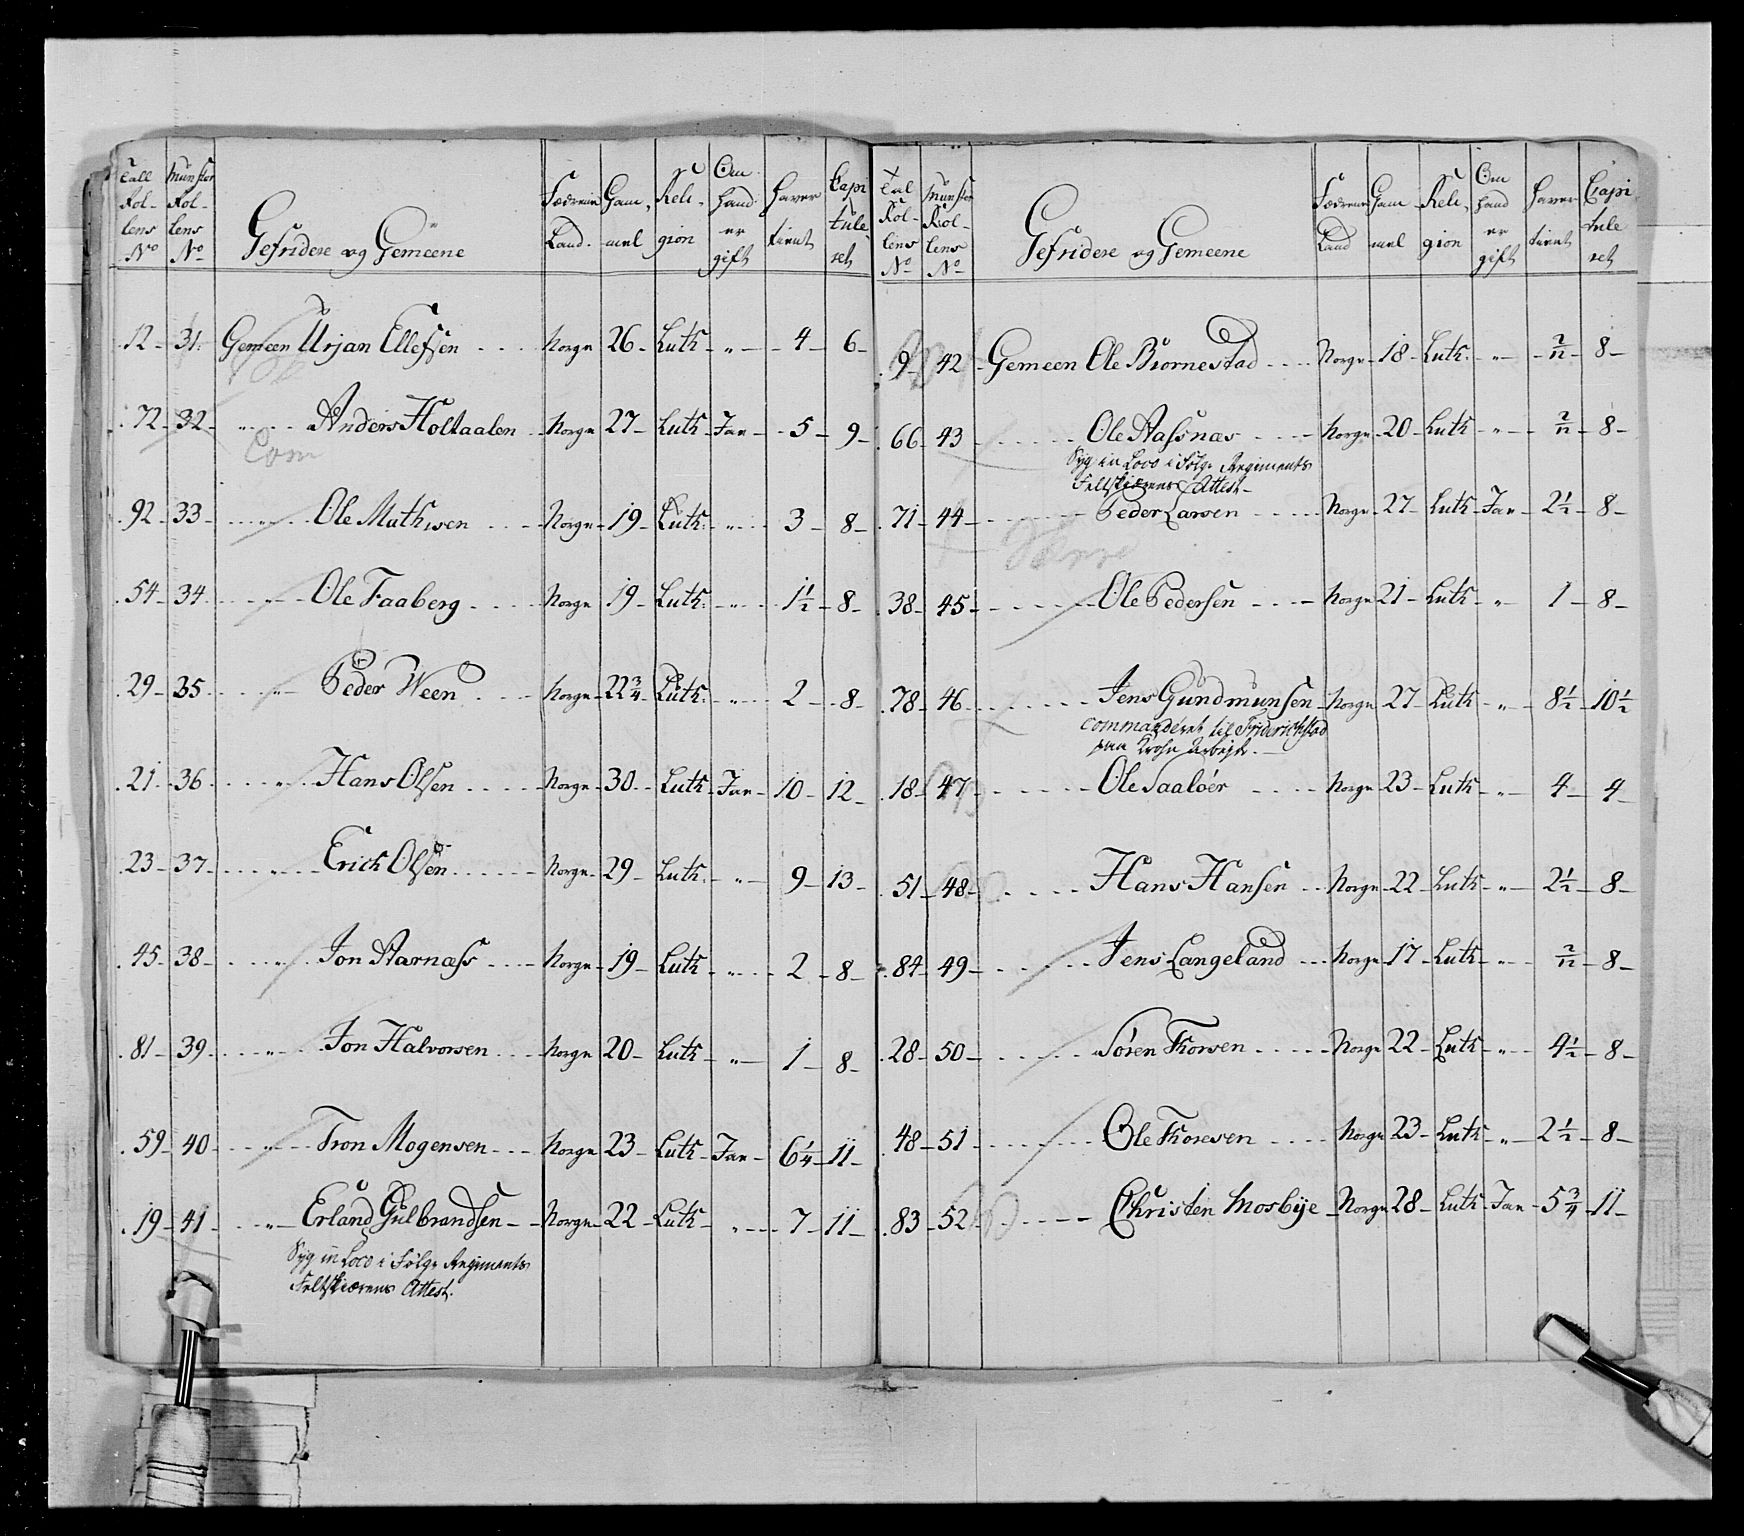 Tall Rollens No | Munster Rollens No | Gefridere og Gemeene | Fædrene Land. | Gammel | Religion | Om hand er gift | haver tient | Capituleret
12 31. Gemeen Urjan Ellefsen Norge 26 Luth „ 4 6
72 32 „ Anders Holtaalen Norge 27 Luth Jae 5 9
Com
92 33 „ Ole Mathisen Norge 19 Luth: „ 3 8
54 34 „ Ole Faaberg Norge 19 Luth: „ 1½ 8
29 35 „ Peder Ween Norge 22¾ Luth: „ 2 8
21 36 „ Hans Olsen Norge 30 Luth Jae 10 12
23 37 „ Erich Olsen Norge 29 Luth. „ 9 13
45 38 „ Jon Aarnæss Norge 19 Luth „ 2 8
81 39 „ Jon Halvorsen Norge 20 Luth „ 1 8
59 40 „ Tron Mogensen Norge 23 Luth Jae 6¼ 11
19 41 „ Erland Gulbrandsen Norge 22 Luth „ 7 11
Syg in Loco i Følge Regiments
Feltskiærens Attest.
Tal Rollens No | Munster Rollens No | Gefridere og Gemeene | Fædrene Land | Gammel | Religion | Om hand er gift | haver tient | Capituleret
9 42 Gemeen Ole Biornestad Norge 18 Luth: „ 2/12 8
66 43 Ole Aassnas Norge 20 Luth „ 2/12 8
Syg in Loco i Følge Regiments
Feltskiærens Attest
71 44 Peder Larsen Norge 27 Luth Jae 2½ 8
38 45 Ole Pedersen Norge 21 Luth „ 1 8
78 46 Jens Gundmunsen Norge 27 Luth „ 8½ 10½
commanderet til Friderichstad
paa Krohn Arbejde.
18 47 Ole Saaløer Norge 23 Luth „ 4 4
51 48 Hans Hansen Norge 22 Luth „ 2½ 8
84 49 Jens Langeland Norge 17 Luth „ 2/12 8
28 50 Søren Thorsen Norge 22 Luth „ 4½ 8
48 51 Ole Thoresen Norge 23 Luth „ 2½ 8
83 52 Christen Mosbye Norge 28 Luth Jae 5¾ 11